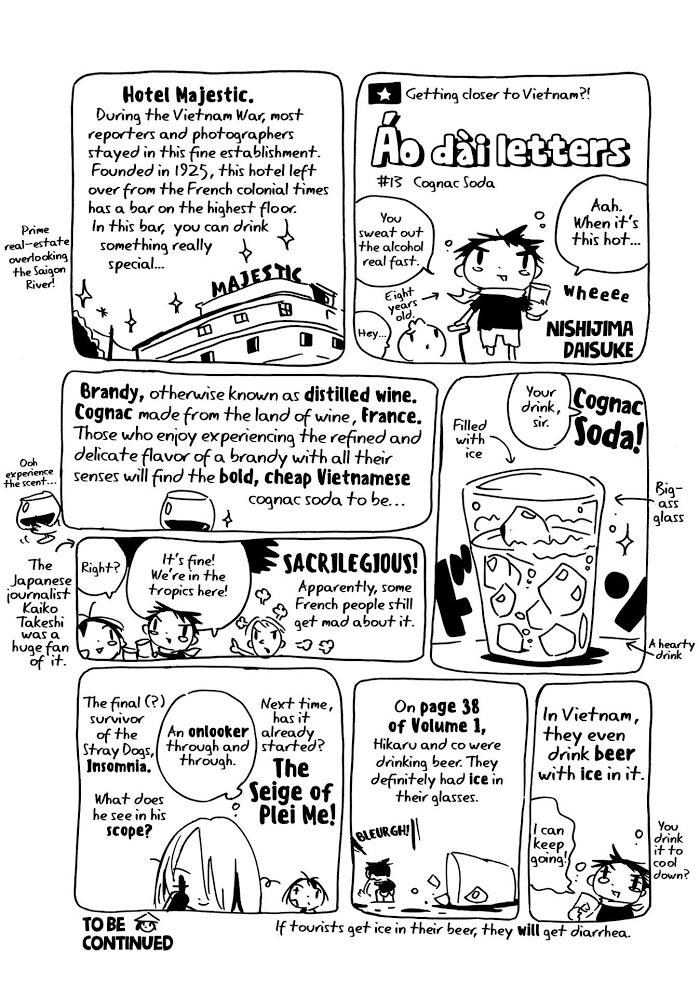 Getting closer to Vietnam?!
Áo dài letters
#13 Cognac Soda
Aah.
When it's
this hot...
You
sweat out
the alcohol
real fast.
Eight
years
old.
Hey...
Wheeee
NISHIJIMA
DAISUKE
Hotel Majestic.
During the Vietnam War, most
reporters and photographers
stayed in this fine establishment.
Founded in 1925, this hotel left
over from the French colonial times
has a bar on the highest floor.
In this bar, you can drink
something really
special...
Prime
real-estate
overlooking
the Saigon
River!
MAJESTIC
Brandy, otherwise known as distilled wine.
Cognac made from the land of wine, France.
Those who enjoy experiencing the refined and
delicate flavor of a brandy with all their
senses will find the bold, cheap Vietnamese
cognac soda to be...
Ooh
experience
the scent...
Your
drink,
sir.
Cognac
Soda!
Filled
with
ice
Big-
ass
glass
A hearty
drink
Right?
It's fine!
We're in the
tropics here!
SACRILEGIOUS!
Apparently, some
French people still
get mad about it.
The
Japanese
journalist
Kaiko
Takeshi
was a
huge fan
of it.
In Vietnam,
they even
drink beer
with ice in it.
I can
keep
going!
You
drink
it to
cool
down?
On page 38
of Volume 1,
Hikaru and co were
drinking beer. They
definitely had ice in
their glasses.
BLEURGH!
If tourists get ice in their beer, they will get diarrhea.
Next time,
has it
already
started?
The
Seige of
Plei Me!
An onlooker
through and
through.
The final (?)
survivor
of the
Stray Dogs,
Insomnia.
What does
he see in his
scope?
TO BE
CONTINUED